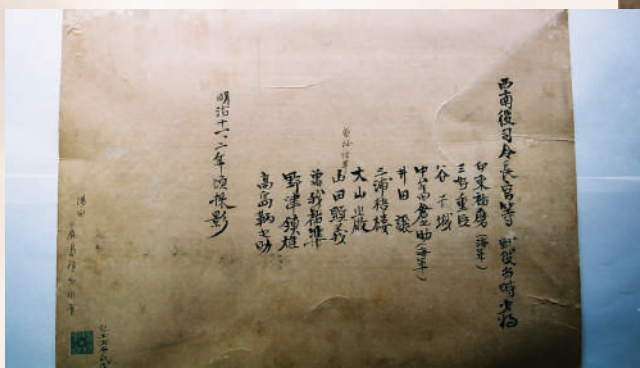 西南役司令長官等 戦役当時少将
伊東祐麿（海軍）
三好重臣
谷干城
中牟田倉之助（海軍）
井田譲
三浦梧楼
大山巌
山田顕義
曽我祐準
野津鎮雄
高島鞆之助
明治十一、二年頃撮影